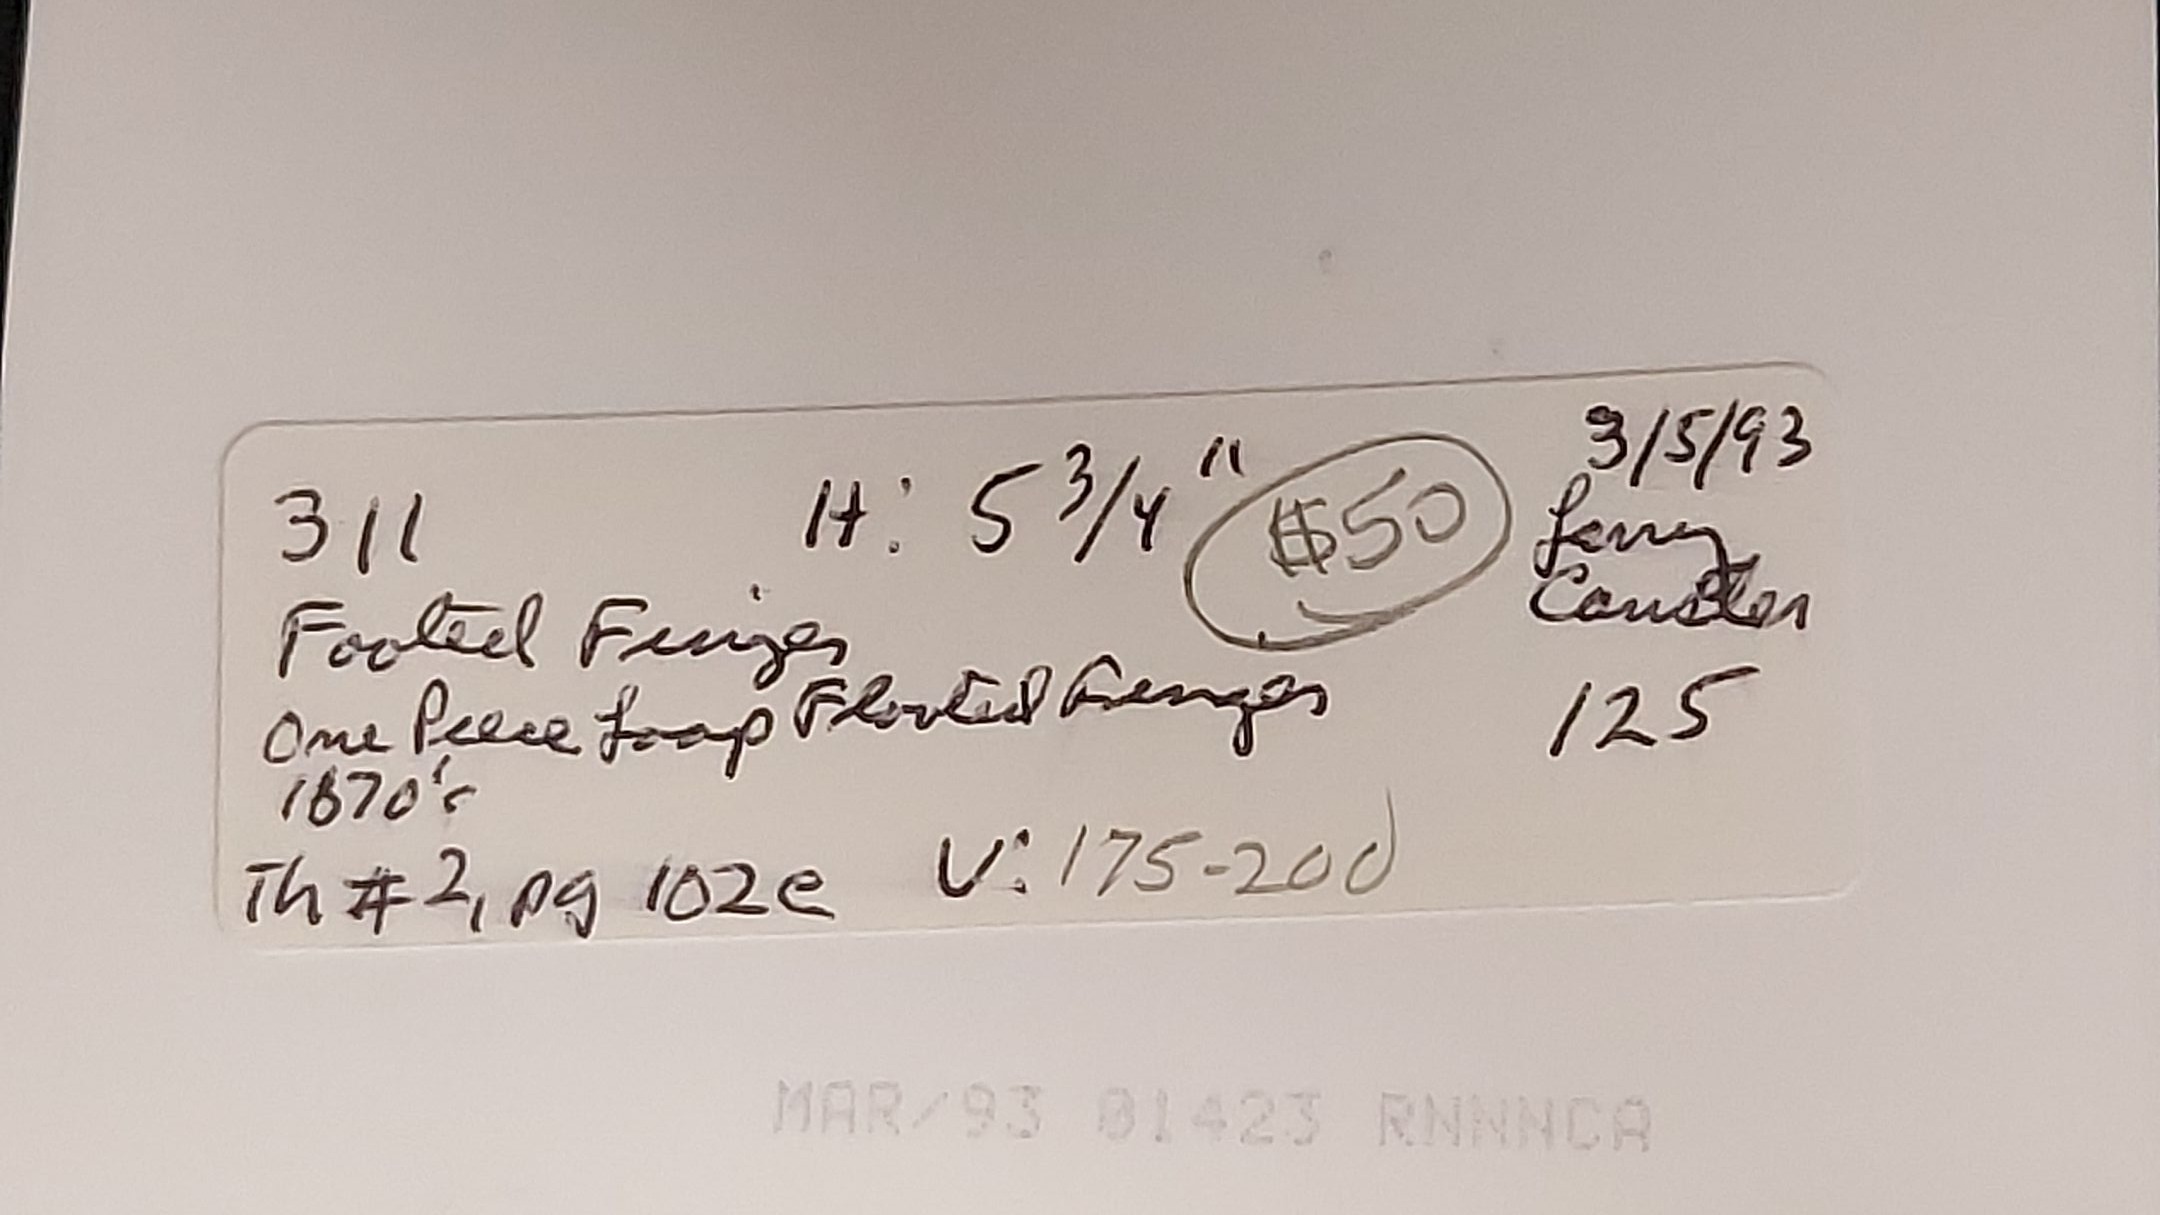 311 H: 5 3/4" $50 3/5/93
Footed Finger
One Piece Loop Fluted Finger
1870's
125
Th #2, pg 102e V: 175-200
MAR/93 01423 RNNNCA